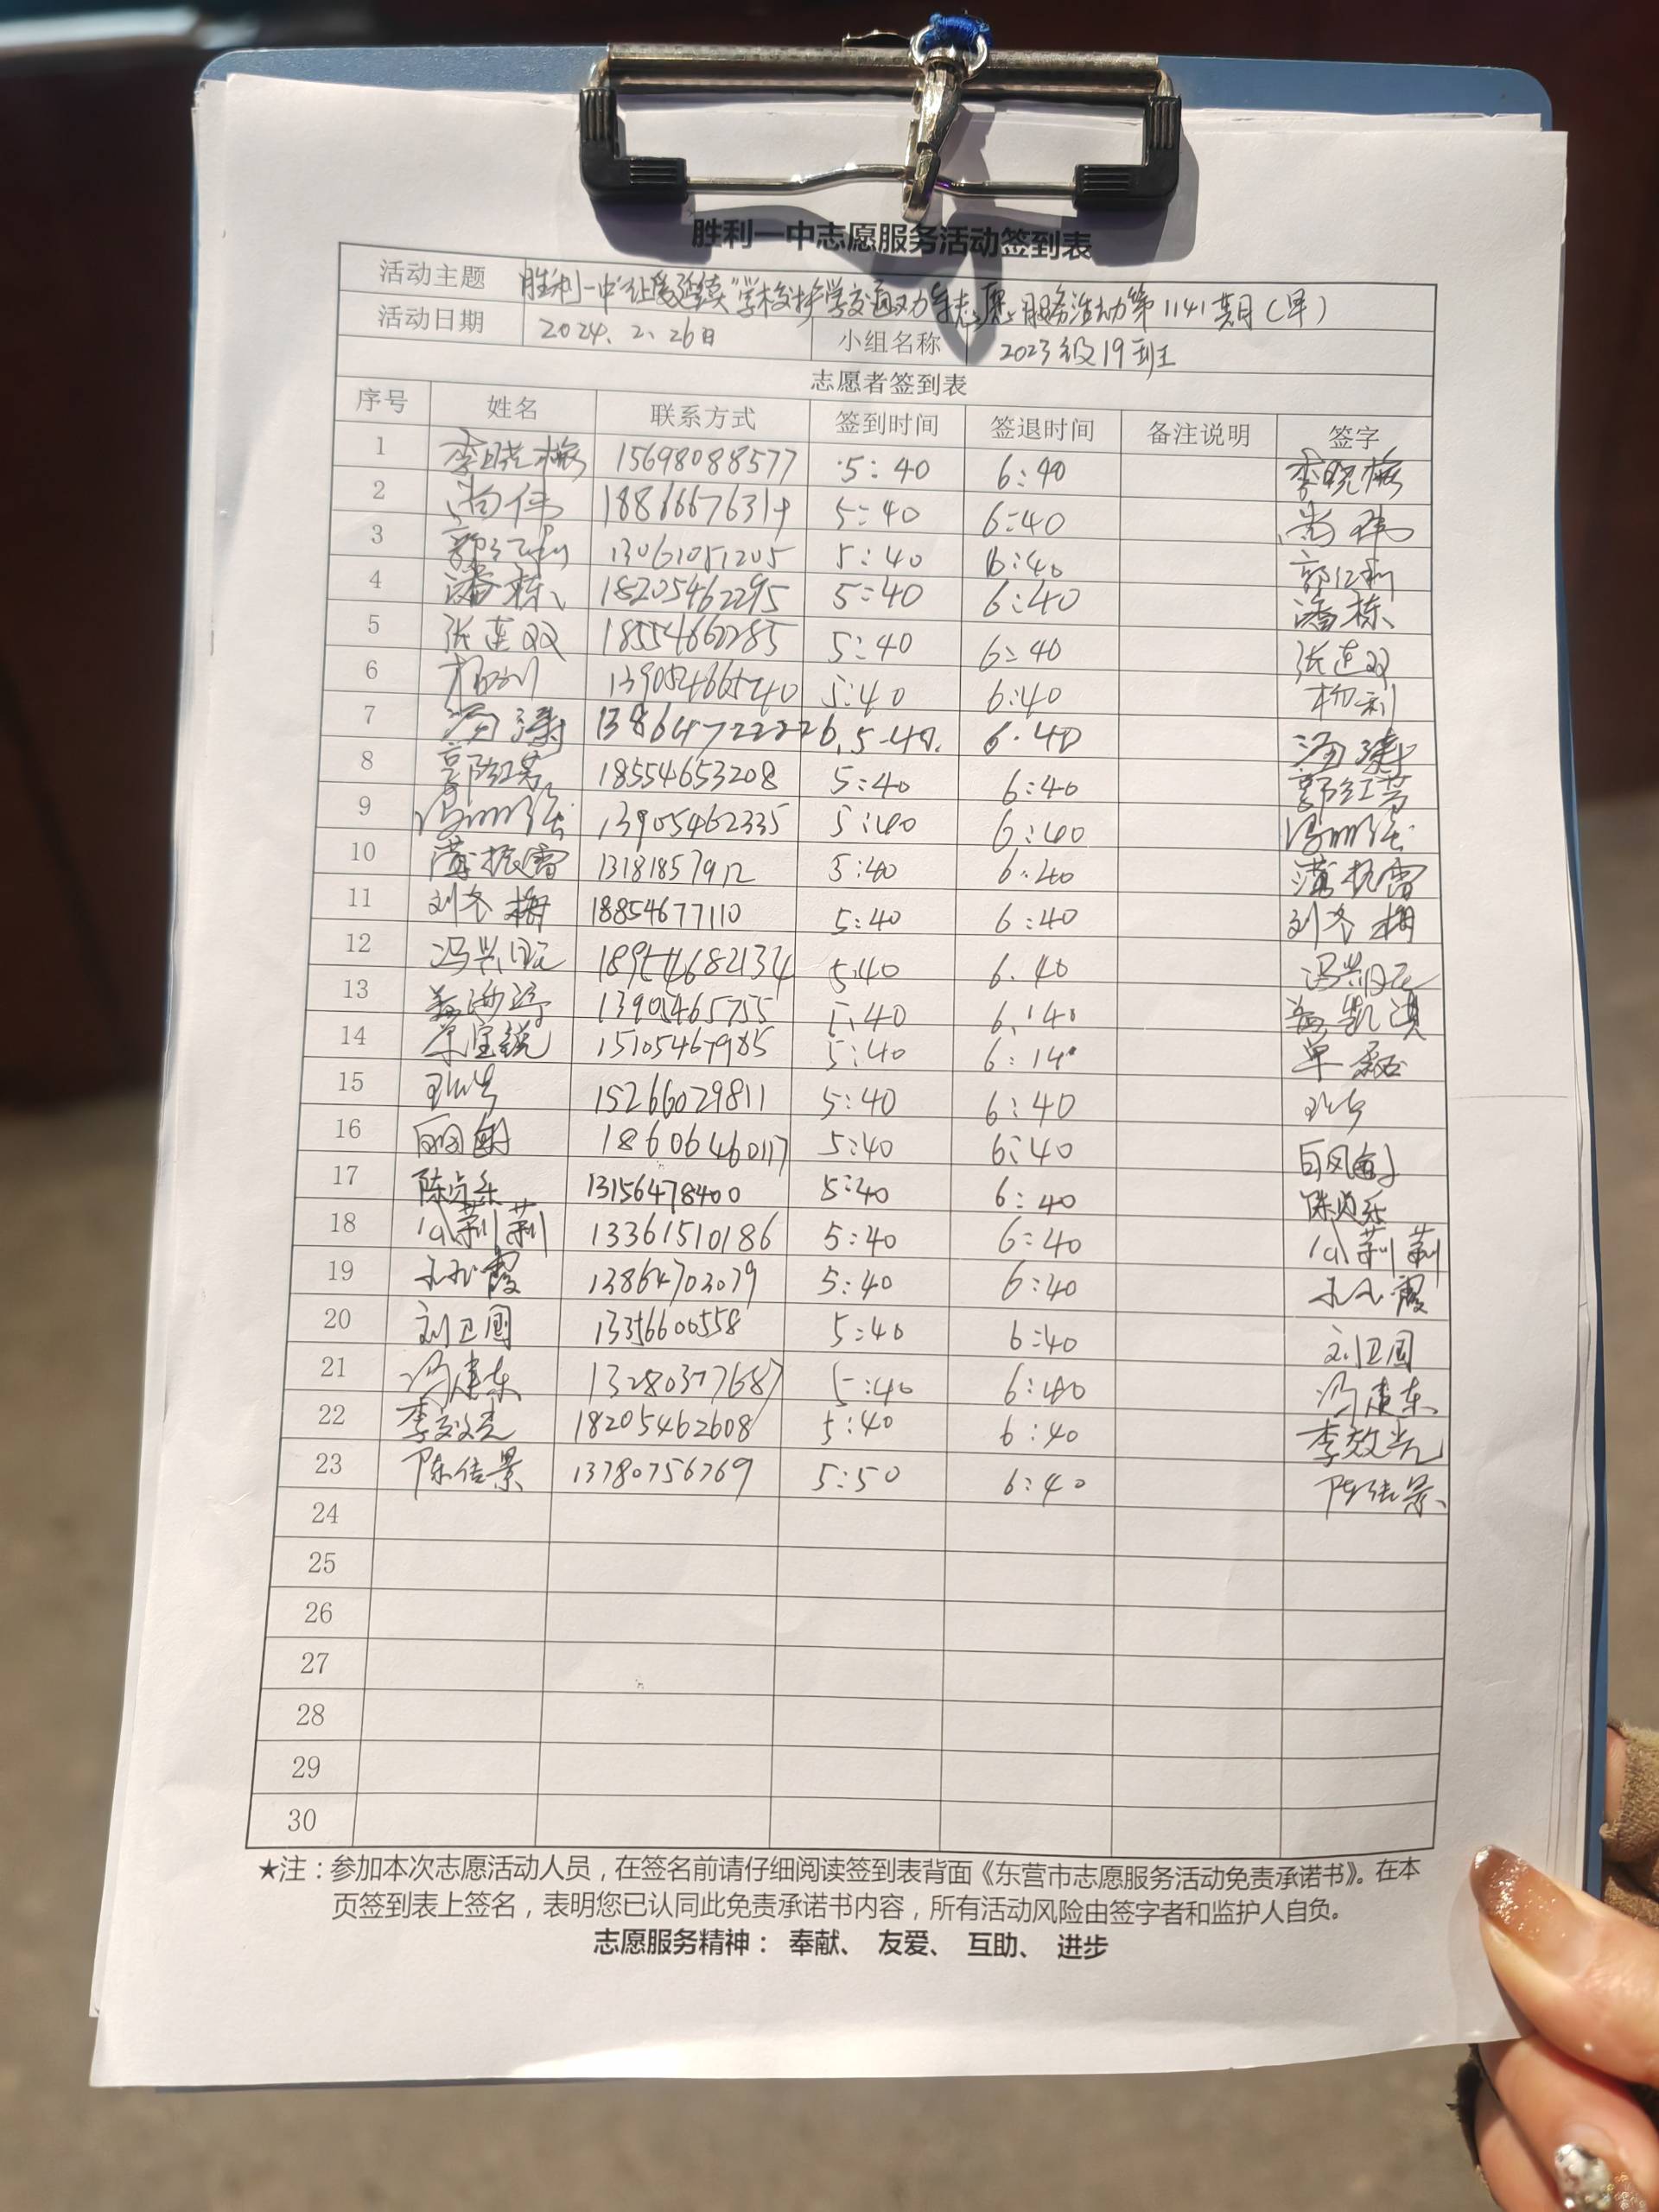 胜利一中志愿服务活动签到表
活动主题 胜利一中"让爱延续"学校护学交通义力军志愿服务活动第1141期(早)
活动日期 2024.2.26日 小组名称 2023级19班
志愿者签到表
序号 姓名 联系方式 签到时间 签退时间 备注说明 签字
1 李晓梅 15698088577 5:40 6:40 李晓梅
2 尚伟 18866676314 5:40 6:40 尚伟
3 13061051205 5:40 6:40
4 潘栋 18205462295 5:40 6:40 潘栋
5 张连双 18554660285 5:40 6:40 张连双
6 13905466540 5:40 6:40
7 13864722226 5-40 6.40
8 郭红芳 18554653208 5:40 6:40 郭红芳
9 13905462335 5:40 6:40
10 薄振雷 13181857912 5:40 6.40 薄振雷
11 刘冬梅 18854677110 5:40 6:40 刘冬梅
12 18954682134 5:40 6.40
13 13905465755 5:40 6:40
14 15105467985 5:40 6:14 单磊
15 15266029811 5:40 6:40
16 18606460117 5:40 6:40
17 陈贞乐 13156478400 5:40 6:40 陈贞乐
18 莉莉 13361510186 5:40 6:40 莉莉
19 霞 13864703079 5:40 6:40 霞
20 刘卫国 13356600558 5:40 6:40 刘卫国
21 冯建东 13280377687 5:40 6:40 冯建东
22 李效光 18205462608 5:40 6:40 李效光
23 陈信景 13780756769 5:50 6:40 陈信景
24
25
26
27
28
29
30
★注：参加本次志愿活动人员，在签名前请仔细阅读签到表背面《东营市志愿服务活动免责承诺书》。在本
页签到表上签名，表明您已认同此免责承诺书内容，所有活动风险由签字者和监护人自负。
志愿服务精神： 奉献、 友爱、 互助、 进步